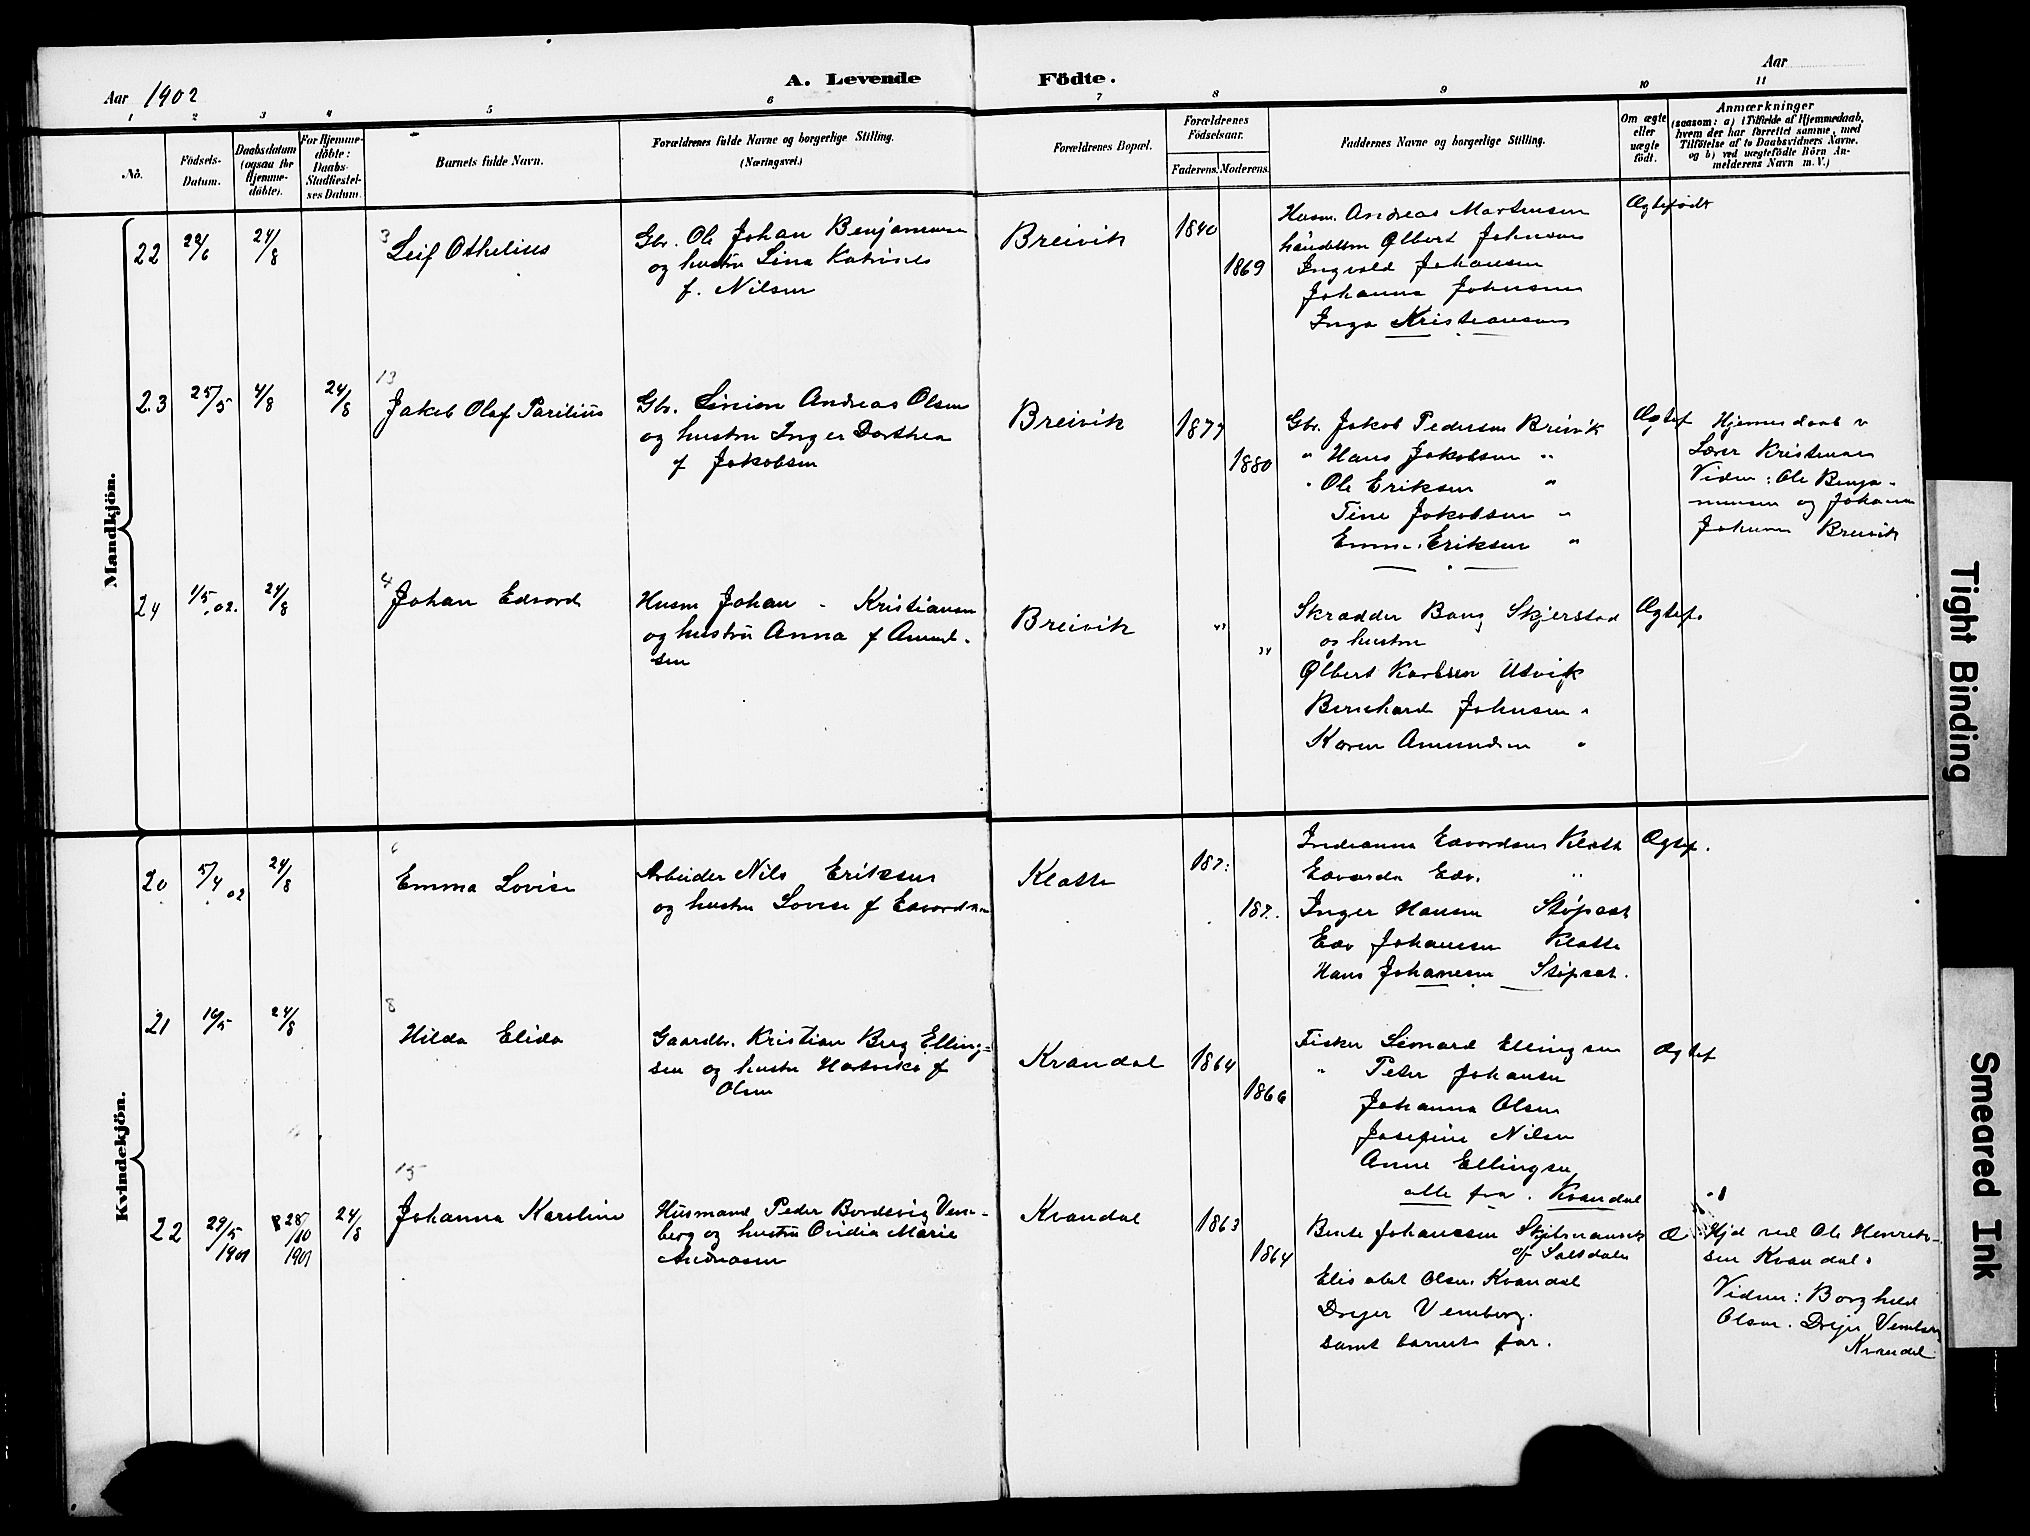 Aar 1902
A. Levende Födte.
Aar
1 2 3 4 5 6 7 8 9 10 11
No.
Födsels-Datum.
Daabsdatum (ogsaa for Hjemme-döbte).
For Hjemme-döbte: Daabs-Stadfæstel-ses Datum.
Barnets fulde Navn.
Forældrenes fulde Navne og borgerlige Stilling.
(Næringsvei.)
Forældrenes Bopæl.
Forældrenes Födselsaar.
Faderens. Moderens.
Faddernes Navne og borgerlige Stilling.
Om ægte eller uægte födt.
Anmærkninger
(saasom: a) i Tilfælde af Hjemmedaab,
hvem der har forrettet samme, med
Tilföielse af to Daabsvidners Navne.
og b) ved uægtefödte Börn An-
melderens Navn m. V.)
Mandkjön.
22 22/6 24/8
3
Leif Othelius
Gbr. Ole Johan Benjaminsen
og hustru Lina Katrines
f. Nilsen
Breivik
1840
1869
Husm. Andreas Martinsen
Ølbert Johnsen
Ingvald Johansen
Johanna Johnsen
Inga Kristiansen
Ægtefødt
23 25/5 4/8 24/8
13
Jakob Olaf Parilius
Gbr. Simon Andreas Olsen
og hustru Inger Dorthea
f Jakobsen
Breivik
1877
1880
Gbr. Jakob Pedersen Breivik
" Hans Jakobsen "
" Ole Eriksen "
Tine Jakobsen "
Emma Eriksen "
Ægtef
Hjemmedaab v
Lærer Kristensen
Vidner: Ole Benja-
minsen og Johanna
Johnsen Breivik
24 1/5 .02. 24/8
4
Johan Edvard
Husm Johan - Kristiansen
og hustru Anna f Amund-
sen
Breivik
"
"
Skrædder Bang Skjerstad
og hustru
Ølbert Karlsen Utvik
Bernhard Johnsen "
Karen Amundsen "
Ægtef.
Kvindekjön.
20 5/4 02 24/8
6
Emma Lovise
Arbeider Nils Eriksen
og hustru Lovise f Edvardsen
Klatte
187.
187.
Indianna Edvardsen Klatte
Edvarda Edv. "
Inger Hansen Støpset
Edv Johansen Klatte
Hans Johansen Støpset.
Ægtef.
21 16/5 24/8
8
Hilda Elida
Gaardbr. Kristian Berg Elling-
sen og hustru Hartvika f
Olsen
Kvandal
1864
1866
Fisker Leonard Ellingsen
" Peter Johansen
Johanna Olsen
Josefine Nilsen
Anne Ellingsen
alle fra Kvandal
Ægtef
22 29/5 1901 28/10 1901 24/8
15
Johanna Karoline
Husmand Peder Bordevig Vem-
berg og hustru Ovidia Marie
Andreasen
Kvandal
1863
1864
Bente Johanssen
af Saltdalen
Elisabet Olsen Kvandal
Dreyer Vemberg.
samt barnets far.
Æ
Hjd ved Ole Henrik-
sen Kvandal.
Vidner: Borghild
Olsen. Dreyer Vemberg
Kvandal
Tight Binding
Smeared Ink